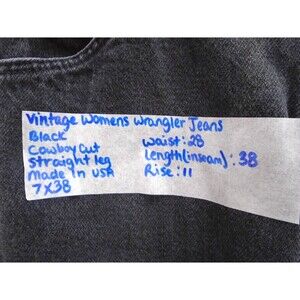 Vintage Womens Wrangler Jeans
Black
Cowboy Cut
straight leg
Made in USA
7X38
Waist: 28
Length(inseam): 38
Rise: 11